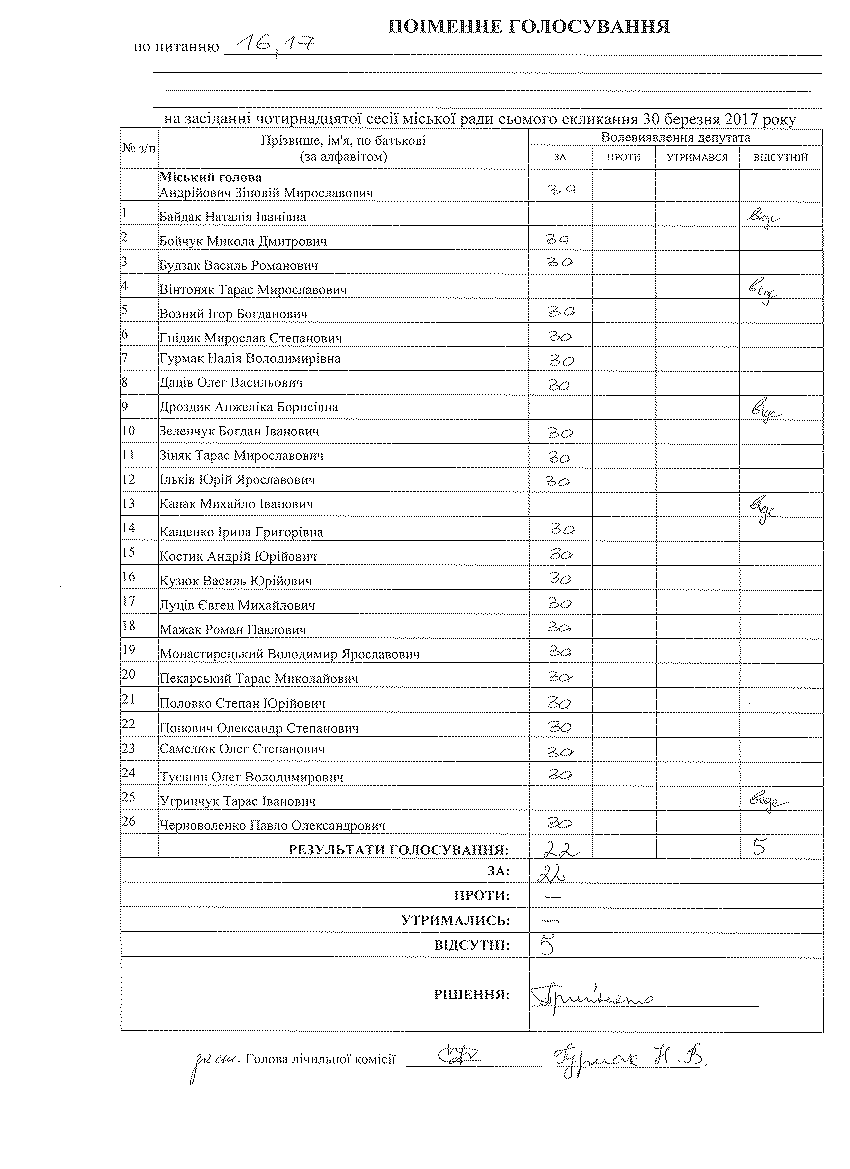 ПОІМЕННЕ ГОЛОСУВАННЯ
по питанню 16,17
на засіданні чотирнадцятої сесії міської ради сьомого скликання 30 березня 2017 року
№ з/п Прізвище, ім'я, по батькові (за алфавітом) Волевиявлення депутата
ЗА ПРОТИ УТРИМАВСЯ ВІДСУТНІЙ
Міський голова
Андрійович Зіновій Мирославович за
1 Байдак Наталія Іванівна відс
2 Бойчук Микола Дмитрович за
3 Будзак Василь Романович за
4 Вінтоняк Тарас Мирославович відс
5 Возний Ігор Богданович за
6 Гнідик Мирослав Степанович за
7 Гурмак Надія Володимирівна за
8 Даців Олег Васильович за
9 Дроздик Анжеліка Борисівна відс
10 Зеленчук Богдан Іванович за
11 Зіняк Тарас Мирославович за
12 Ільків Юрій Ярославович за
13 Капак Михайло Іванович відс
14 Кащенко Ірина Григорівна за
15 Костик Андрій Юрійович за
16 Кузюк Василь Юрійович за
17 Луців Євген Михайлович за
18 Мажак Роман Павлович за
19 Монастирецький Володимир Ярославович за
20 Пекарський Тарас Миколайович за
21 Половко Степан Юрійович за
22 Попович Олександр Степанович за
23 Самелюк Олег Степанович за
24 Тускин Олег Володимирович за
25 Угринчук Тарас Іванович відс
26 Черноволенко Павло Олександрович за
РЕЗУЛЬТАТИ ГОЛОСУВАННЯ: 22 5
ЗА: 22
ПРОТИ: —
УТРИМАЛИСЬ: —
ВІДСУТНІ: 5
РІШЕННЯ: Прийнято
Голова лічильної комісії Гурмак Н. В.